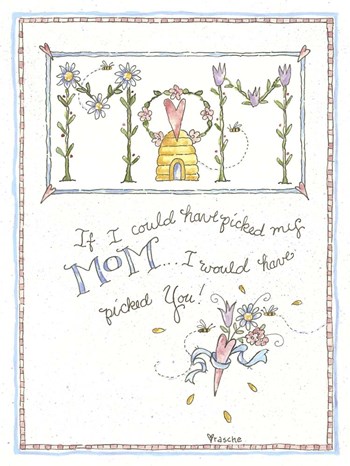 MOM
If I could have picked my
MOM... I would have
picked You!
rasche